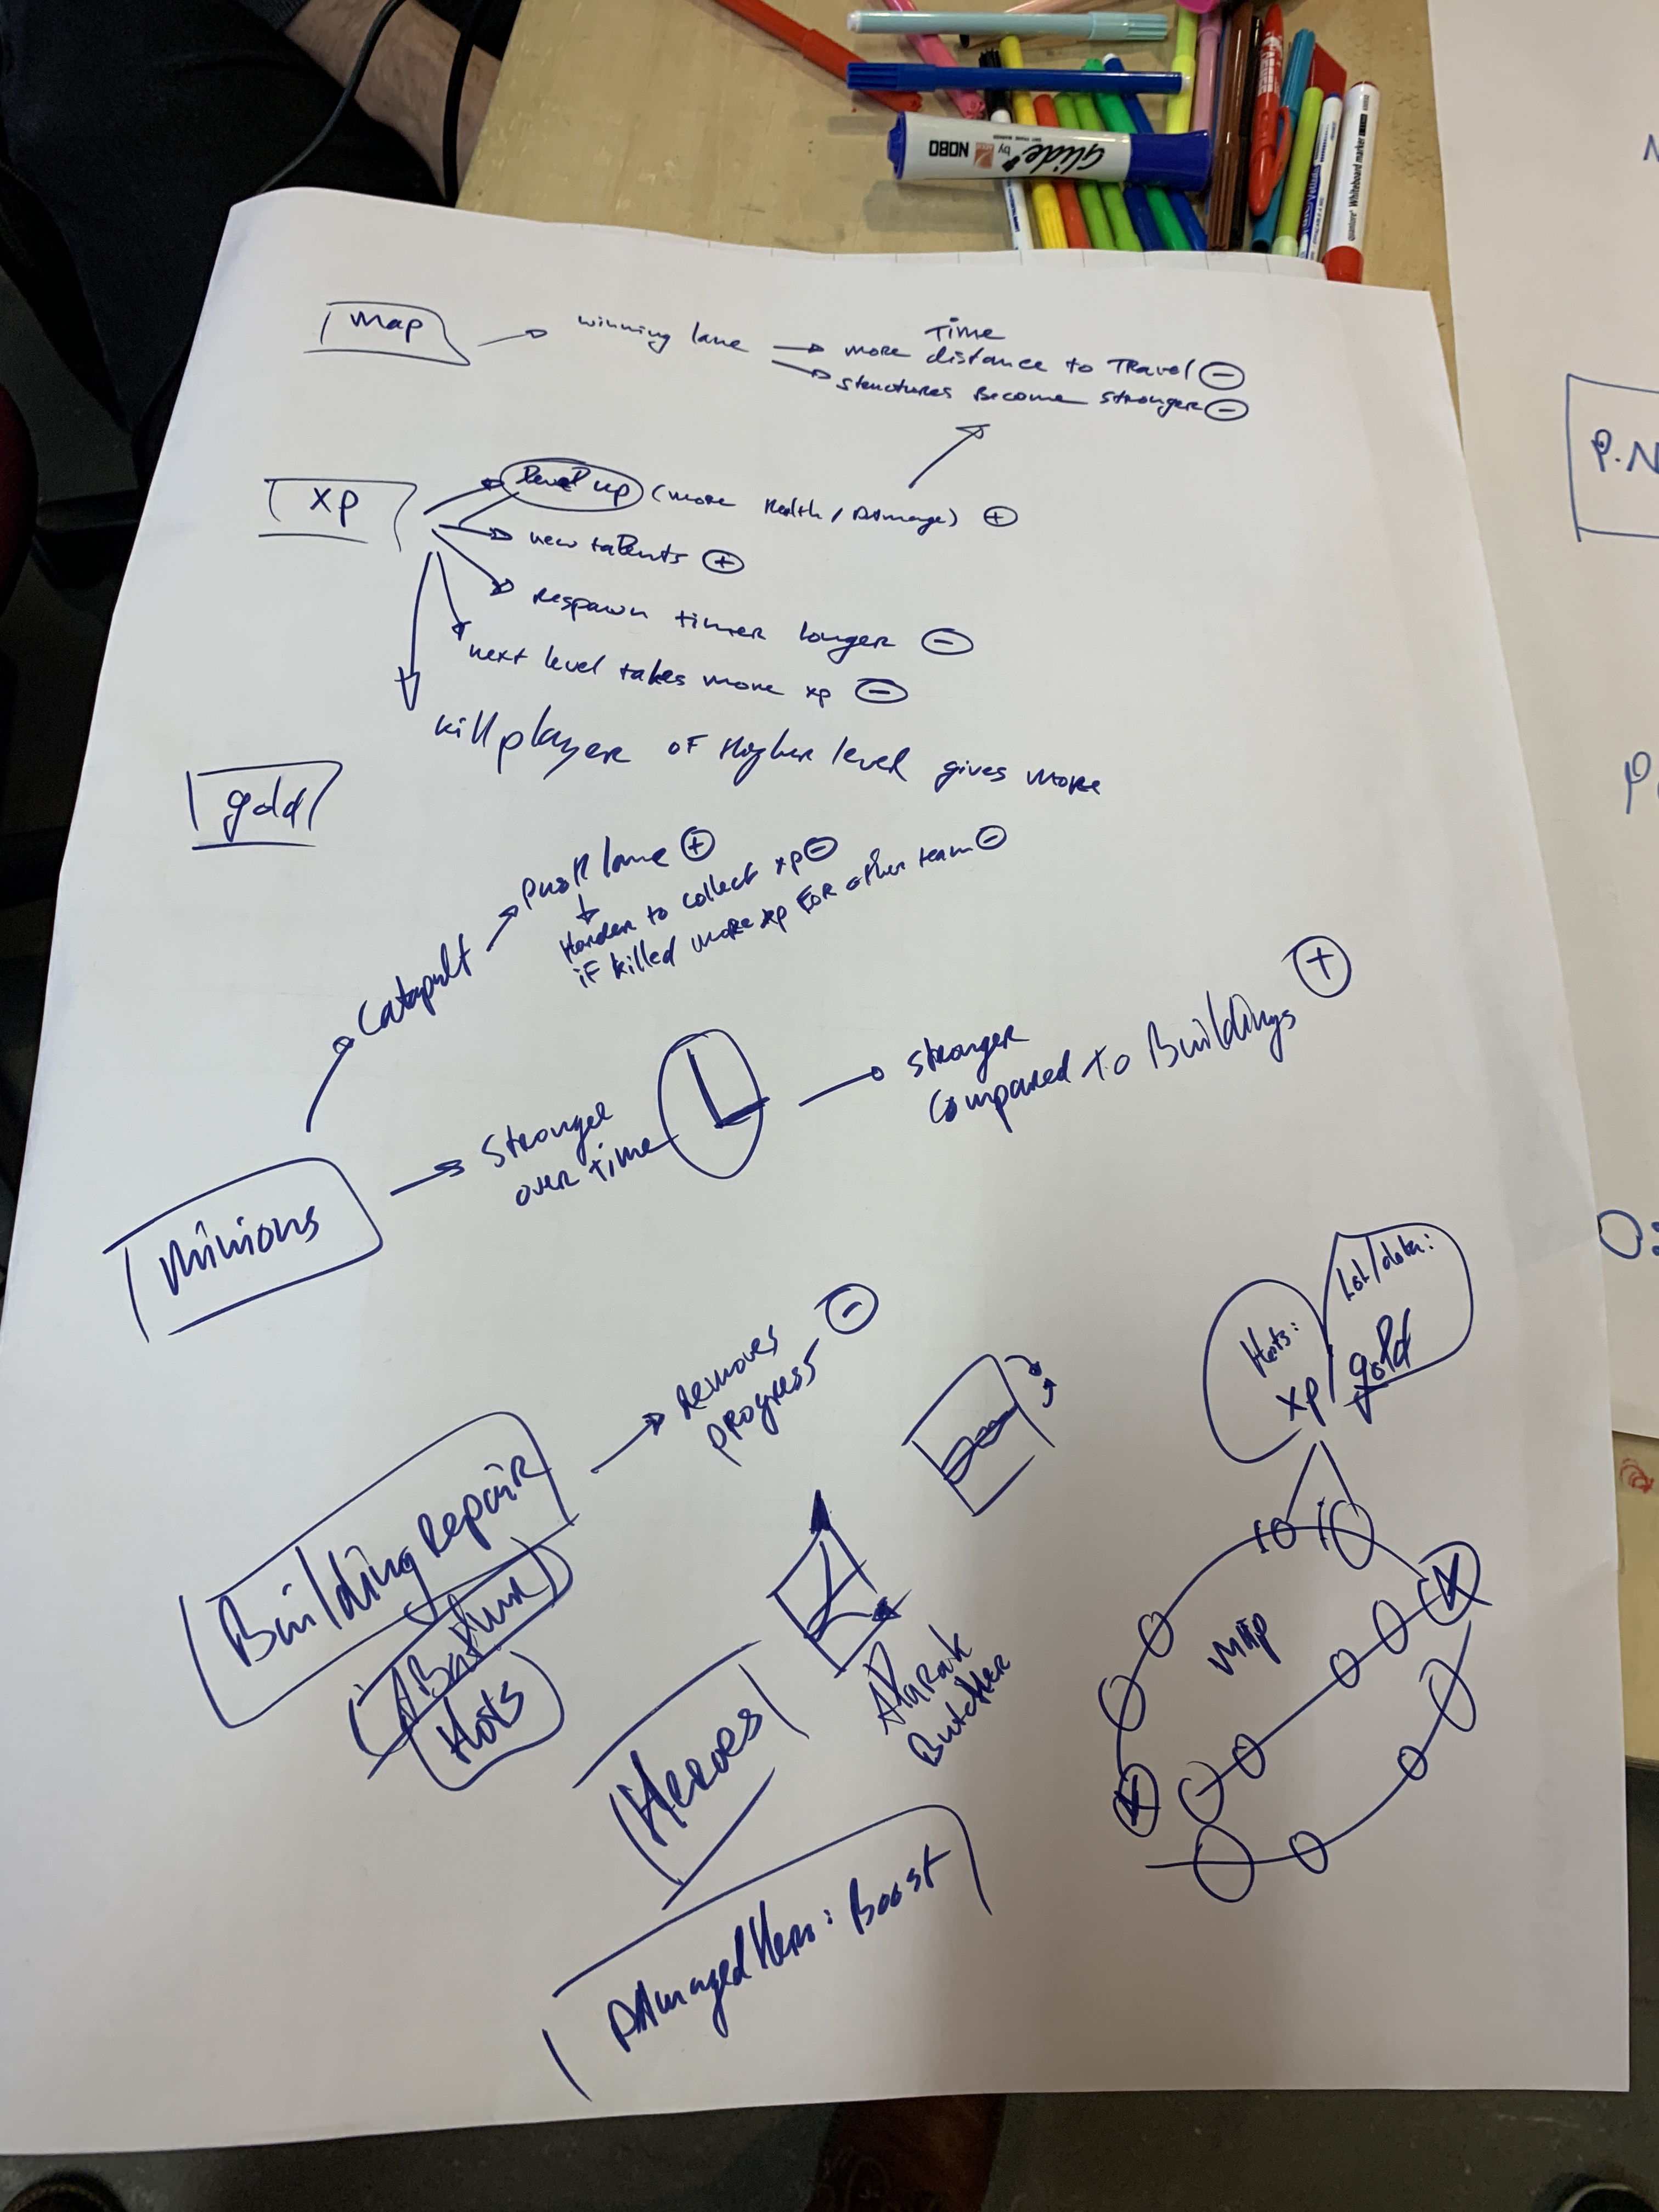 Glide by NOBO
quartet® Whiteboard marker
Map
winning lane
Time
more distance to Travel -
structures Become stronger -
P.N
XP
level up (more Health / DAmage) +
new talents +
respawn timer longer -
next level takes more xp -
kill player of Higher level gives more
gold
Catapult
push lane +
Harder to collect xp -
if killed more xp For other team -
Minions
Stronger
over time
stronger
compared to Buildings +
removes
progress -
Building Repair
Hots
Heroes
Alarak
Butcher
DAmaged Hero: Boost
Hots:
xp
LoL/dota:
gold
Map